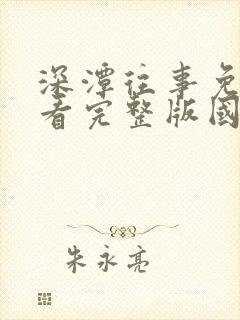 深潭往事免
看完整版國
朱永亮